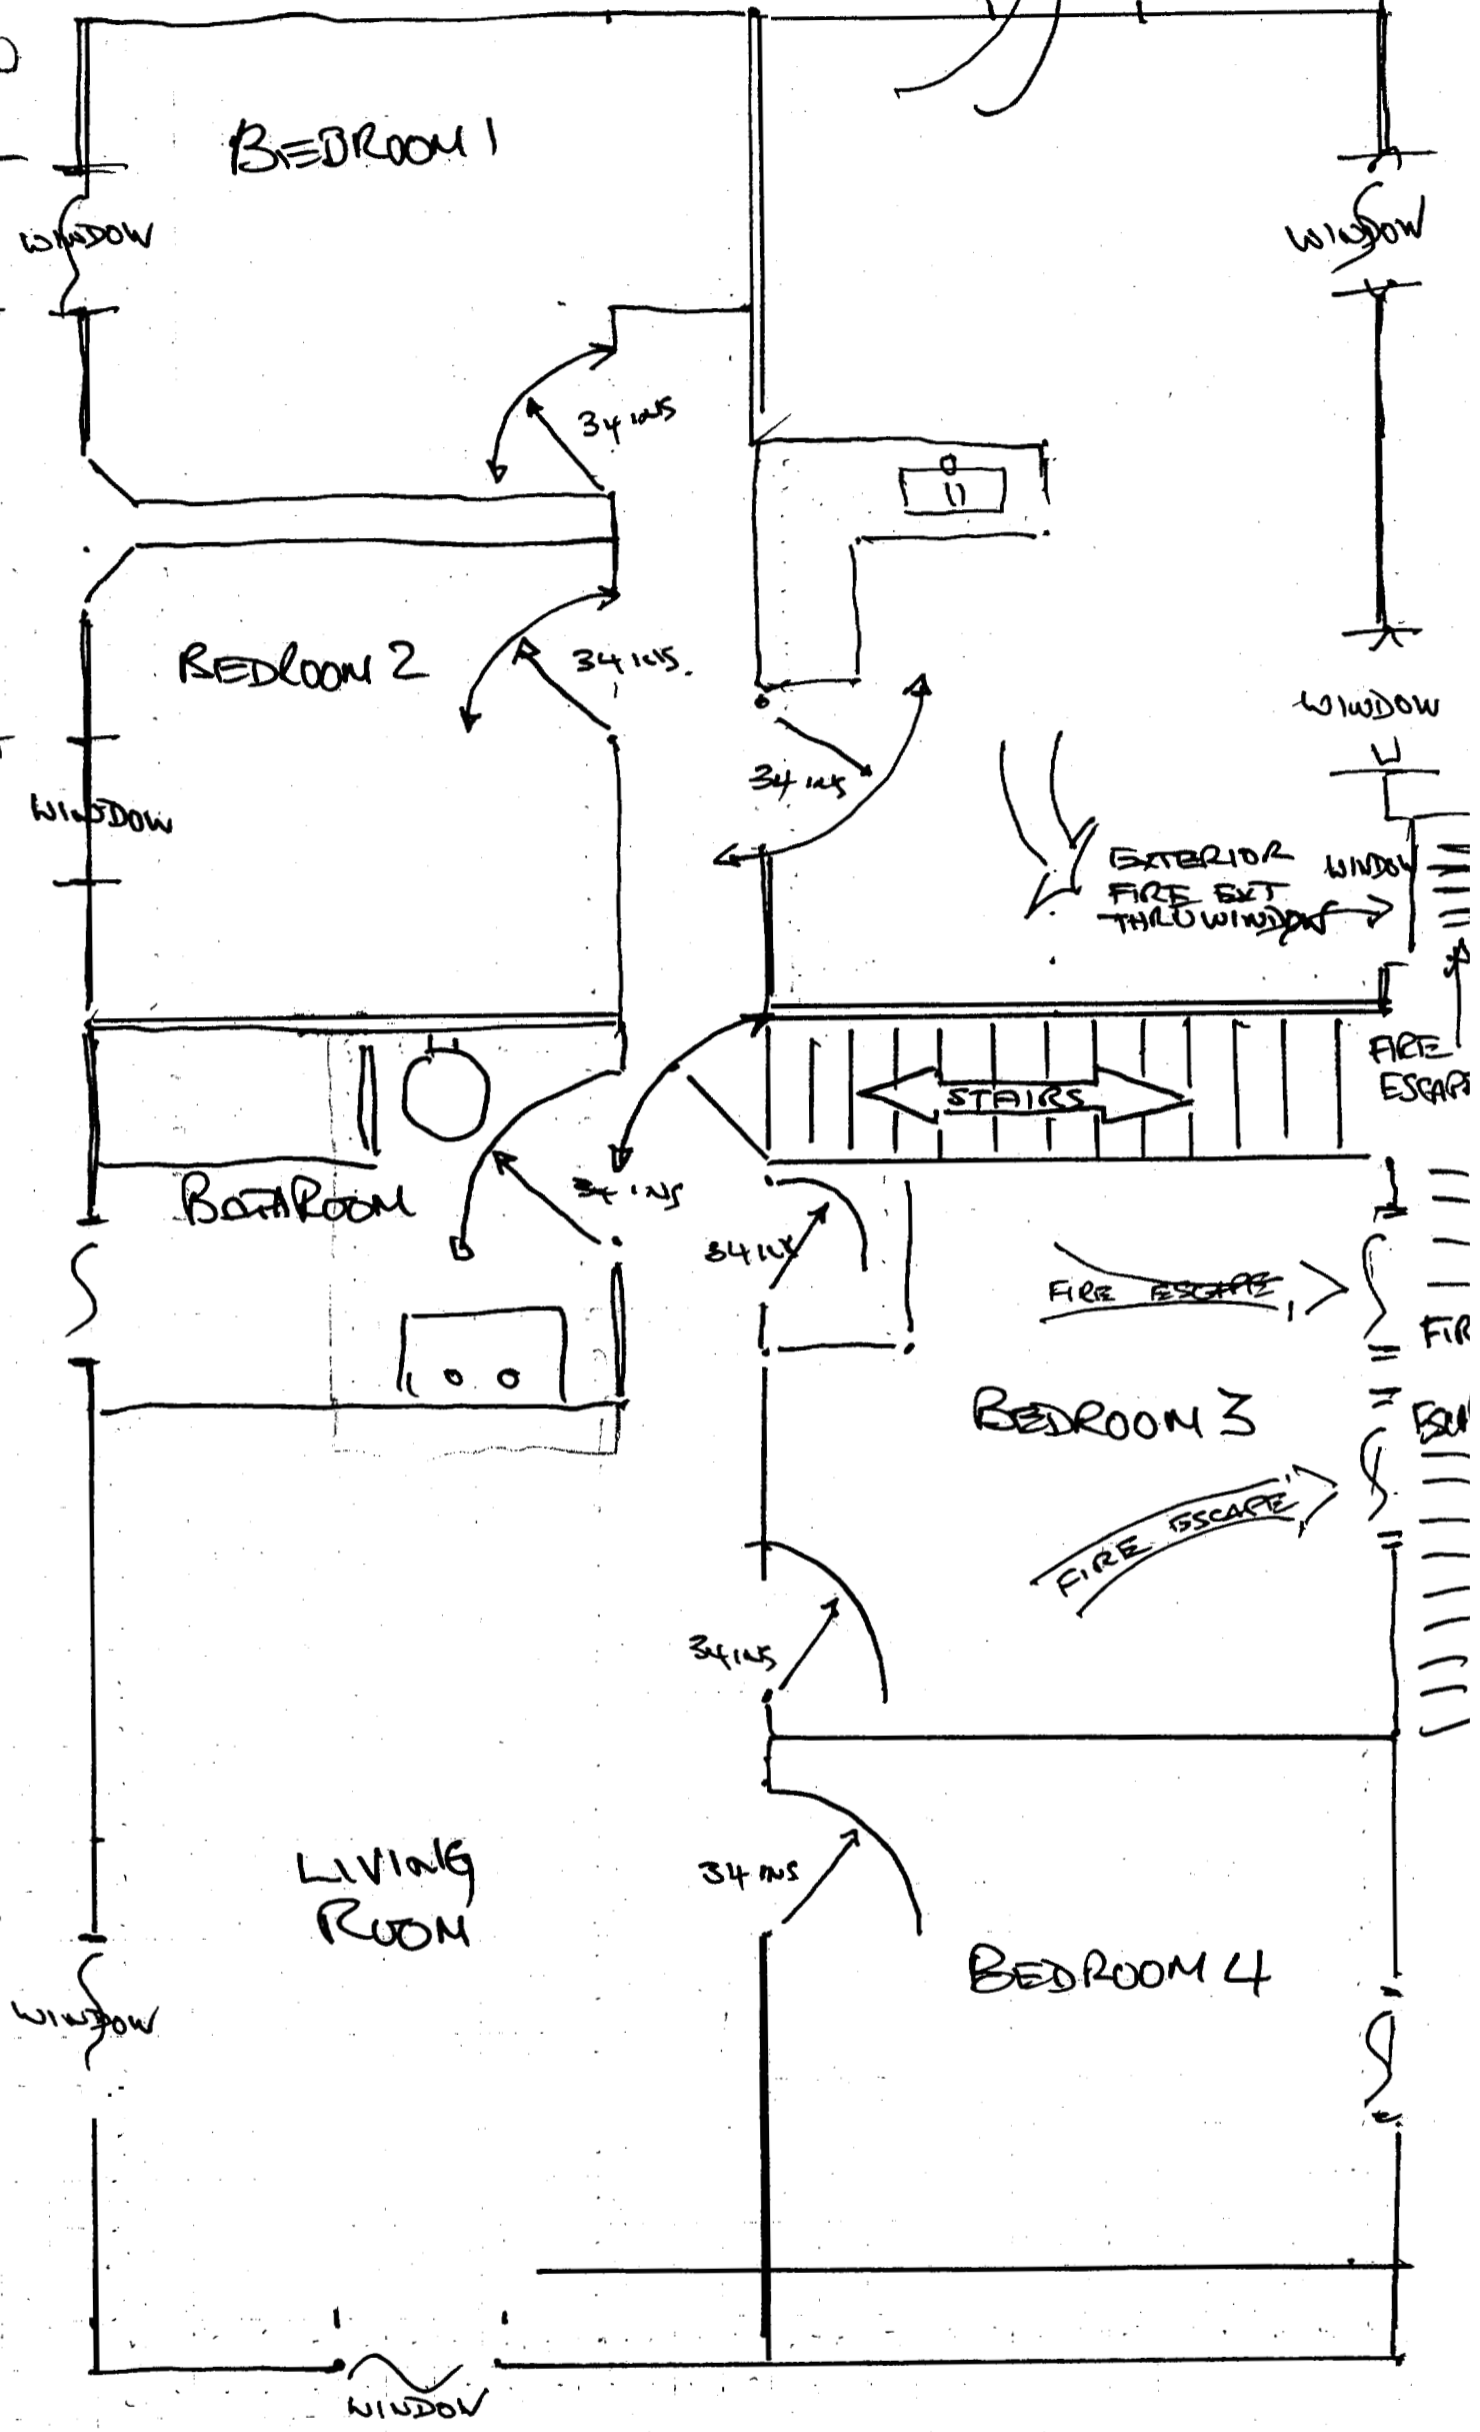 BEDROOM 1
WINDOW
WINDOW
34 INS
BEDROOM 2
34 INS.
WINDOW
34 INS
WINDOW
EXTERIOR
FIRE EXT
THRU WINDOW
WINDOW
FIRE
ESCAPE
STAIRS
BATHROOM
34 INS
34 INS
FIRE ESCAPE
FIR
BEDROOM 3
FIRE ESCAPE
34 INS
34 INS
LIVING
ROOM
BEDROOM 4
WINDOW
WINDOW